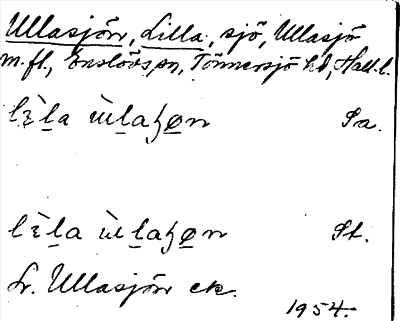 Ullasjön, Lilla, sjö, Ullasjö
m. fl., Enslövs sn, Tönnersjö hd, Hall. l.
lìla ùlaꜧøn Sa.
lìla ùlaꜧøn St.
Lr. Ullasjön ek.
1954.